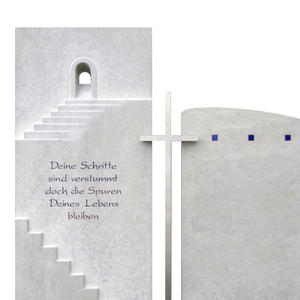 Deine Schritte
sind verstummt
doch die Spuren
Deines Lebens
bleiben